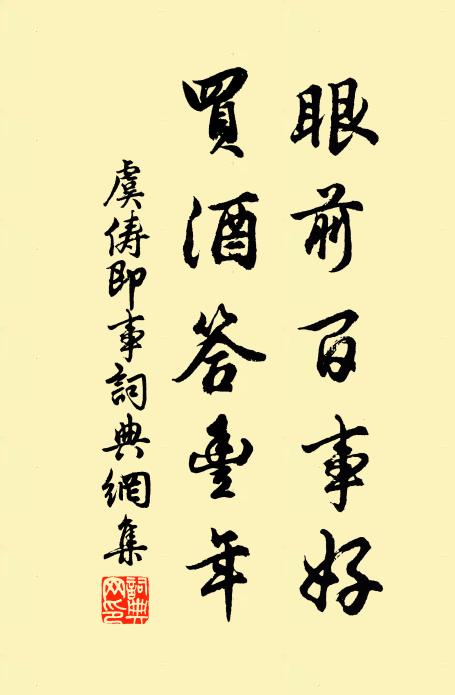 眼前百事好
買酒答豐年
虞儔即事詞典網集
詞典網印